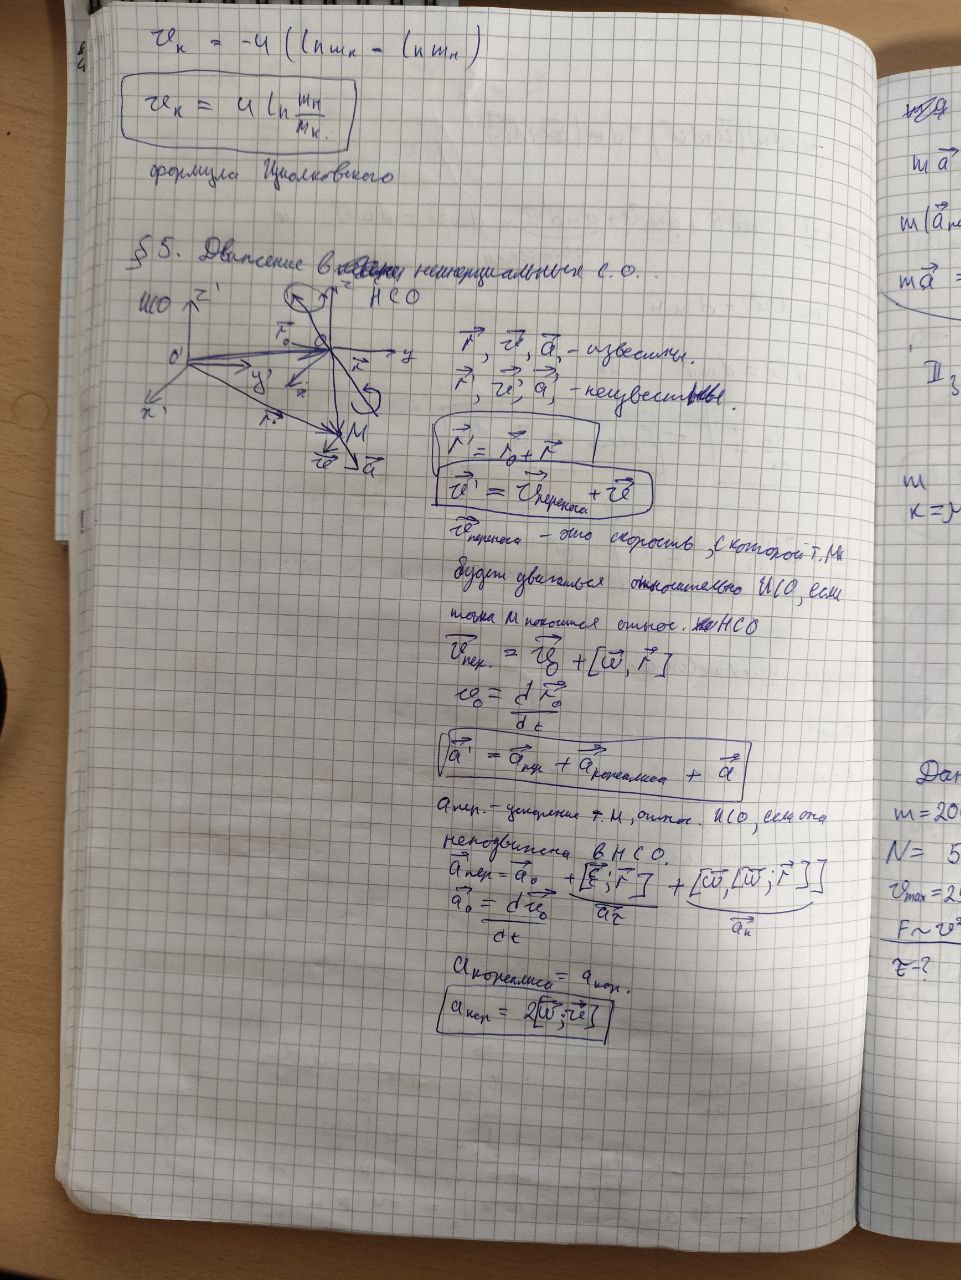 v⃗к = -u (ln mк - ln mн)
vк = u ln mн/мк.
формула Циолковского
§ 5. Движение в неинерциальных С.О.
ИСО z' z НСО
r⃗₀ O y
O' y' x r⃗
x' r⃗' M
v⃗ a⃗
r⃗, v⃗, a⃗, - известны.
r⃗', v⃗', a⃗', - неизвестны.
r⃗' = r⃗₀ + r⃗
v⃗' = v⃗переноса + v⃗
v⃗переноса - это скорость, с которой т. М
будет двигаться относительно ИСО, если
точка М покоится относ. НСО
v⃗пер. = v⃗₀ + [w⃗, r⃗]
v₀ = dr⃗₀/dt
a⃗' = a⃗пер + a⃗кореалиса + a⃗
aпер. - ускорение т. М, относ. ИСО, если она
неподвижна в НСО.
a⃗пер = a⃗₀ + [ε⃗; r⃗] + [w⃗, [w⃗; r⃗]]
a⃗₀ = dv⃗₀/dt a⃗τ a⃗n
aкореалиса = aкор.
aкор = 2[w⃗; v⃗]
m a⃗
m(a⃗
m a⃗ =
II з
m
к =
Дан
m = 20
N = 5
vmax = 2
F ~ v²
τ - ?